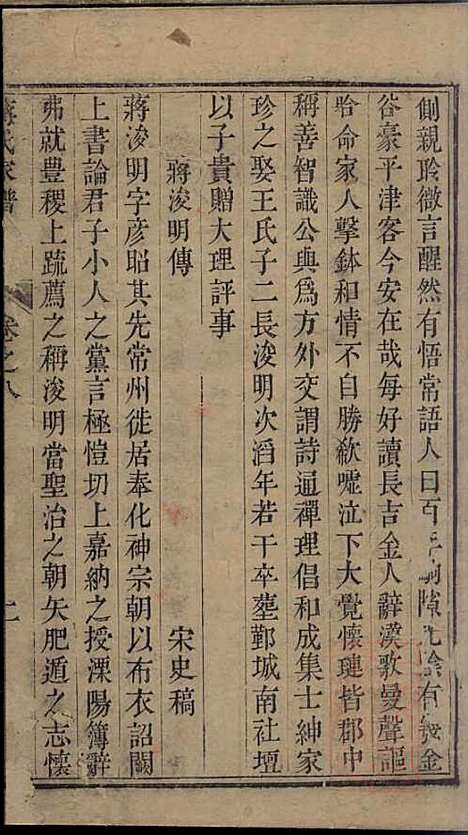 側親聆微言醒然有悟常語人曰百年𨻶光陰有幾金
谷豪平津客今安在哉每好讀長吉金人辭漢歌曼聲謳
哈命家人擊鉢和情不自勝欷噓泣下大覺懷璉皆郡中
稱善智識公與爲方外交謂詩通禪理倡和成集士紳家
珍之娶王氏子二長浚明次滔年若干卒塟鄞城南社壇
以子貴贈大理評事
蔣浚明傳 宋史稿
蔣浚明字彥昭其先常州徙居奉化神宗朝以布衣詔闕
上書論君子小人之黨言極愷切上嘉納之授溧陽簿辭
弗就豊稷上䟽薦之稱浚明當聖治之朝矢肥遁之志懷
蔣氏家譜 卷之八